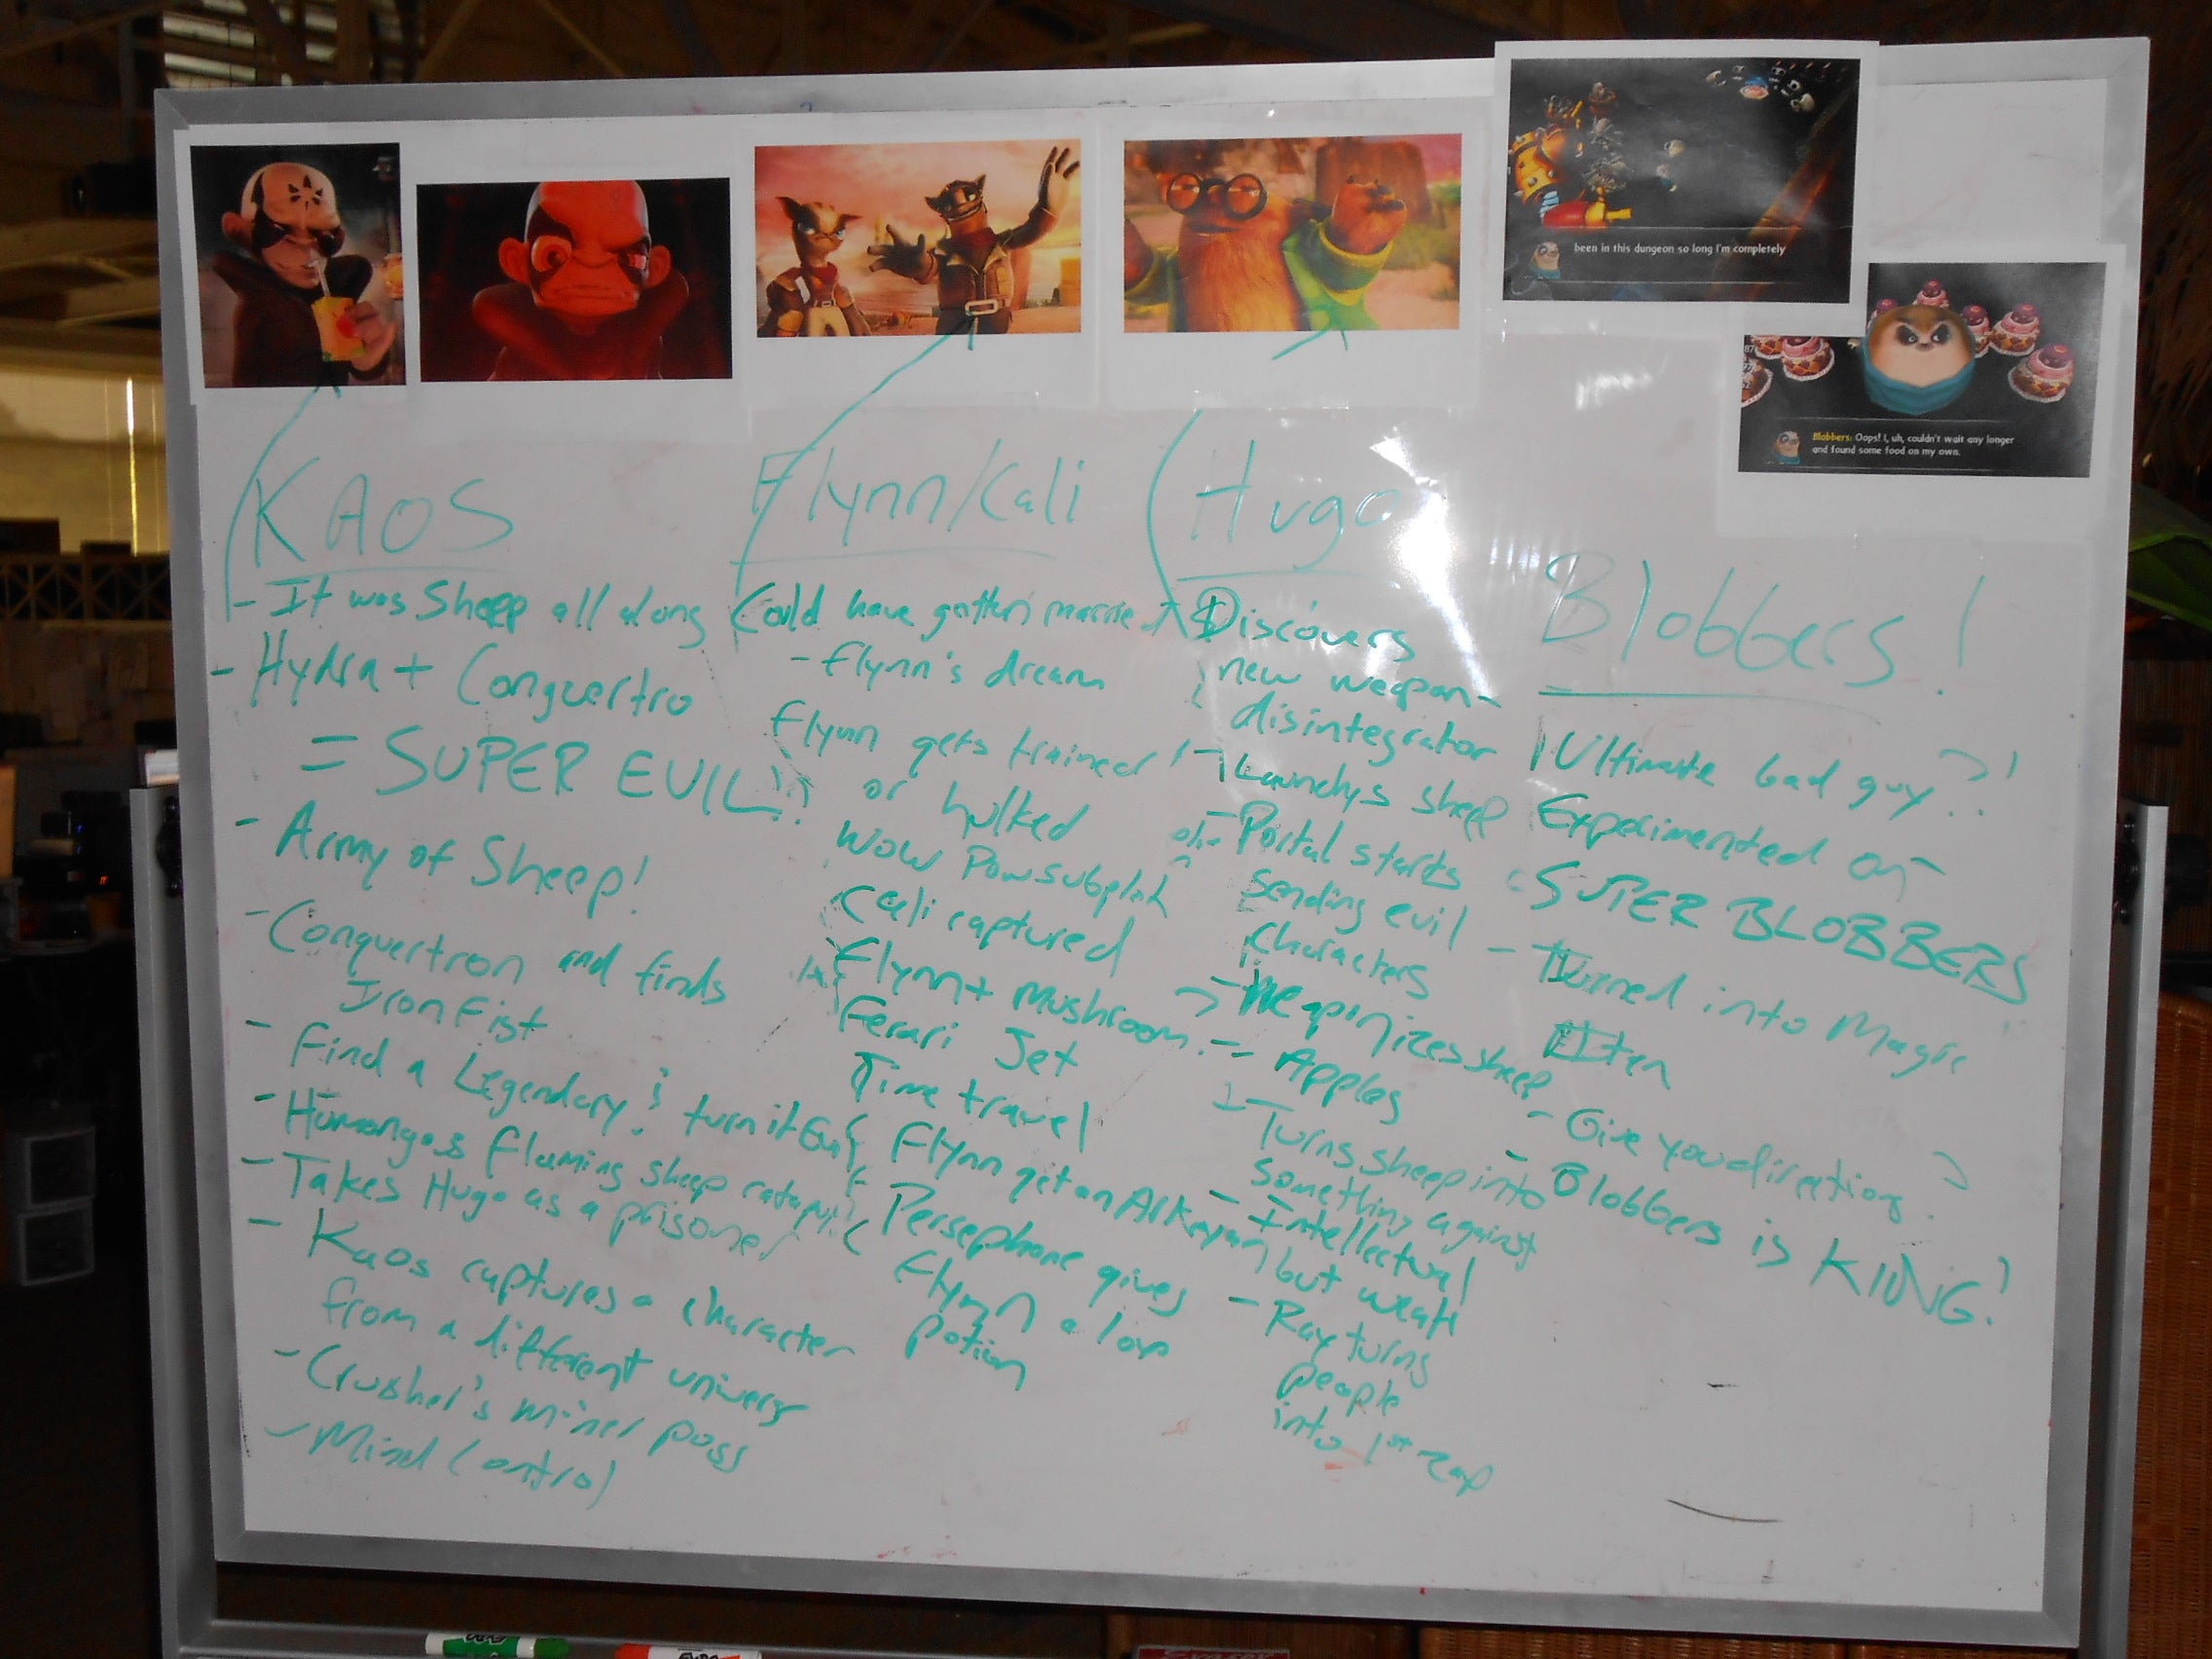 been in this dungeon so long I'm completely
Blobbers: Oops! I, uh, couldn't wait any longer
and found some food on my own.
KAOS
- It was Sheep all along
- Hydra + Conquertro
= SUPER EVIL!!
- Army of Sheep!
- Conquertron and finds
Iron Fist
- Find a Legendary! turn it Evil
- Humongos flaming sheep catapult
- Takes Hugo as a prisoner
- Kaos captures a character
from a different univers
- Crusher's miner pass
- Mind Control
Flynn/Cali
Could have gotten married
- Flynn's dream
Flynn gets trained
or hulked
Wow Pow subplot
Cali captured
Flynn + Mushroom
Ferari Jet
Time travel
Flynn get an Arkeyan
Persephone gives
Flynn a lov
potion
Hugo
Discovers
new weapon -
disintegrator
- Launchs sheep
- Portal starts
sending evil
characters
- Weaponizes sheep
- Apples
- Turns sheep into
something against
- Intellectual
but weak
- Ray turns
people
into 1st zap
Blobbers!
Ultimate bad guy?!
Experimented on -
SUPER BLOBBERS
- Turned into Magic
Item
- Give you directions?
- Blobbers is KING!